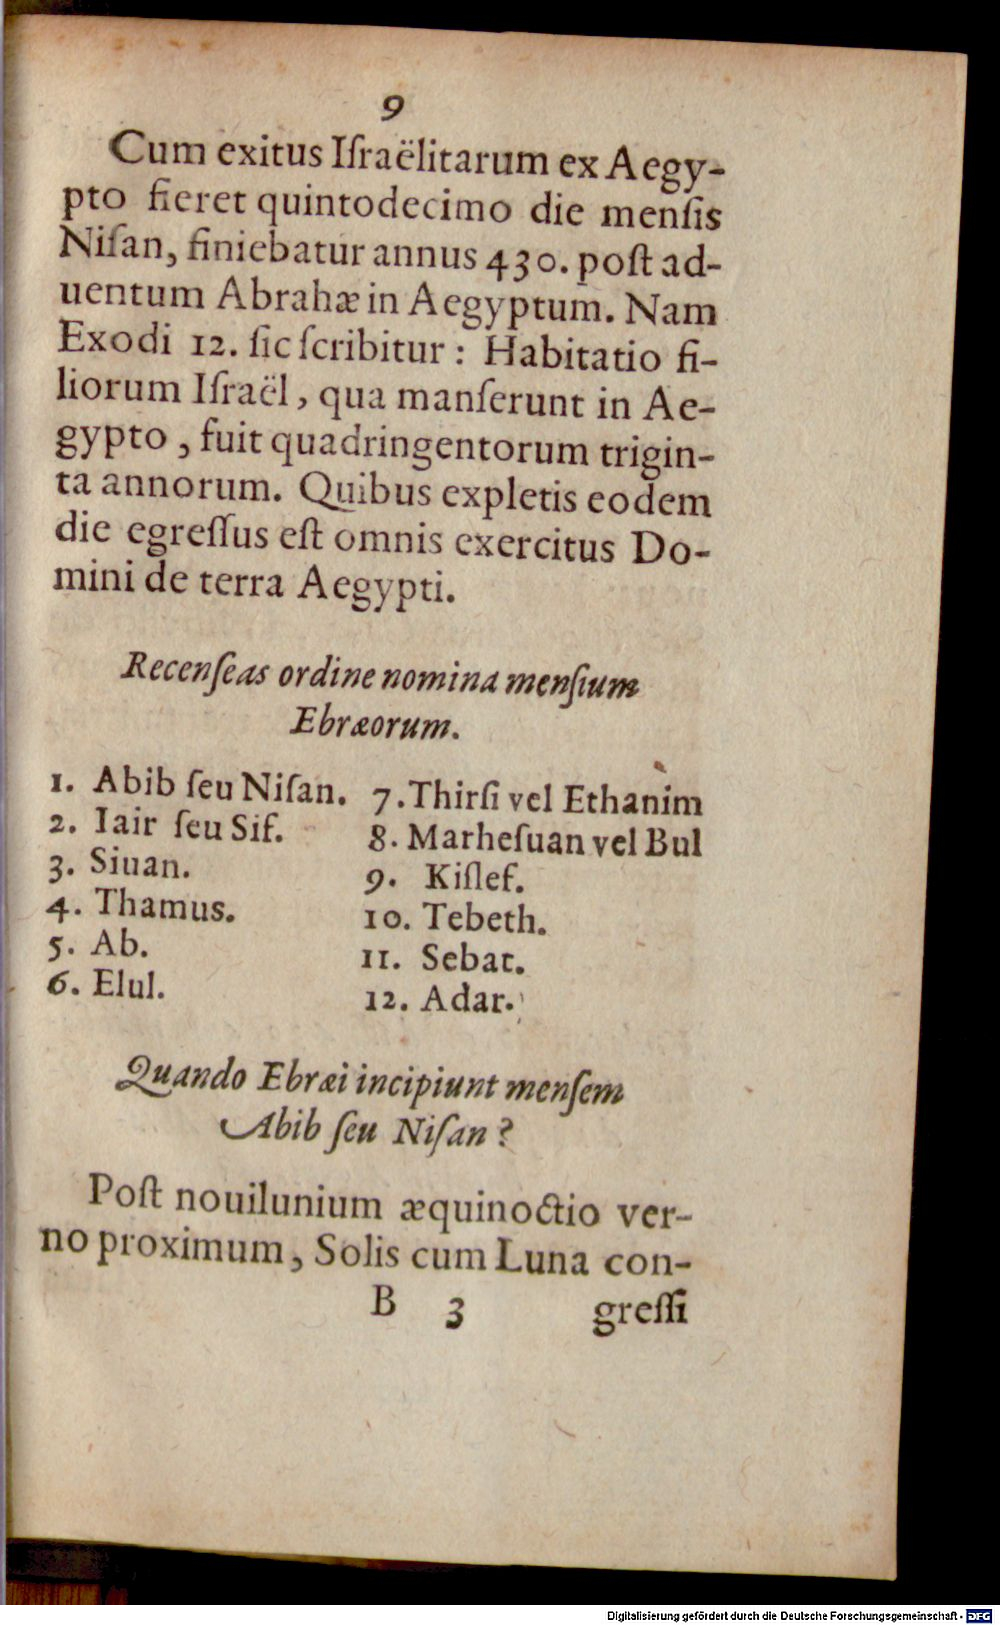 9
Cum exitus Iſraëlitarum ex Aegy-
pto fieret quintodecimo die menſis
Niſan, finiebatur annus 430. poſt ad-
uentum Abrahæ in Aegyptum. Nam
Exodi 12. ſic ſcribitur : Habitatio fi-
liorum Iſraël, qua manſerunt in Ae-
gypto, fuit quadringentorum trigin-
ta annorum. Quibus expletis eodem
die egreſſus eſt omnis exercitus Do-
mini de terra Aegypti.
Recenſeas ordine nomina menſium
Ebræorum.
1. Abib ſeu Niſan.
2. Iair ſeu Sif.
3. Siuan.
4. Thamus.
5. Ab.
6. Elul.
7. Thirſi vel Ethanim
8. Marheſuan vel Bul
9. Kiſlef.
10. Tebeth.
11. Sebat.
12. Adar.
Quando Ebræi incipiunt menſem
Abib ſeu Niſan ?
Poſt nouilunium æquinoctio ver-
no proximum, Solis cum Luna con-
B 3 greſſi
Digitalisierung gefördert durch die Deutsche Forschungsgemeinschaft - DFG